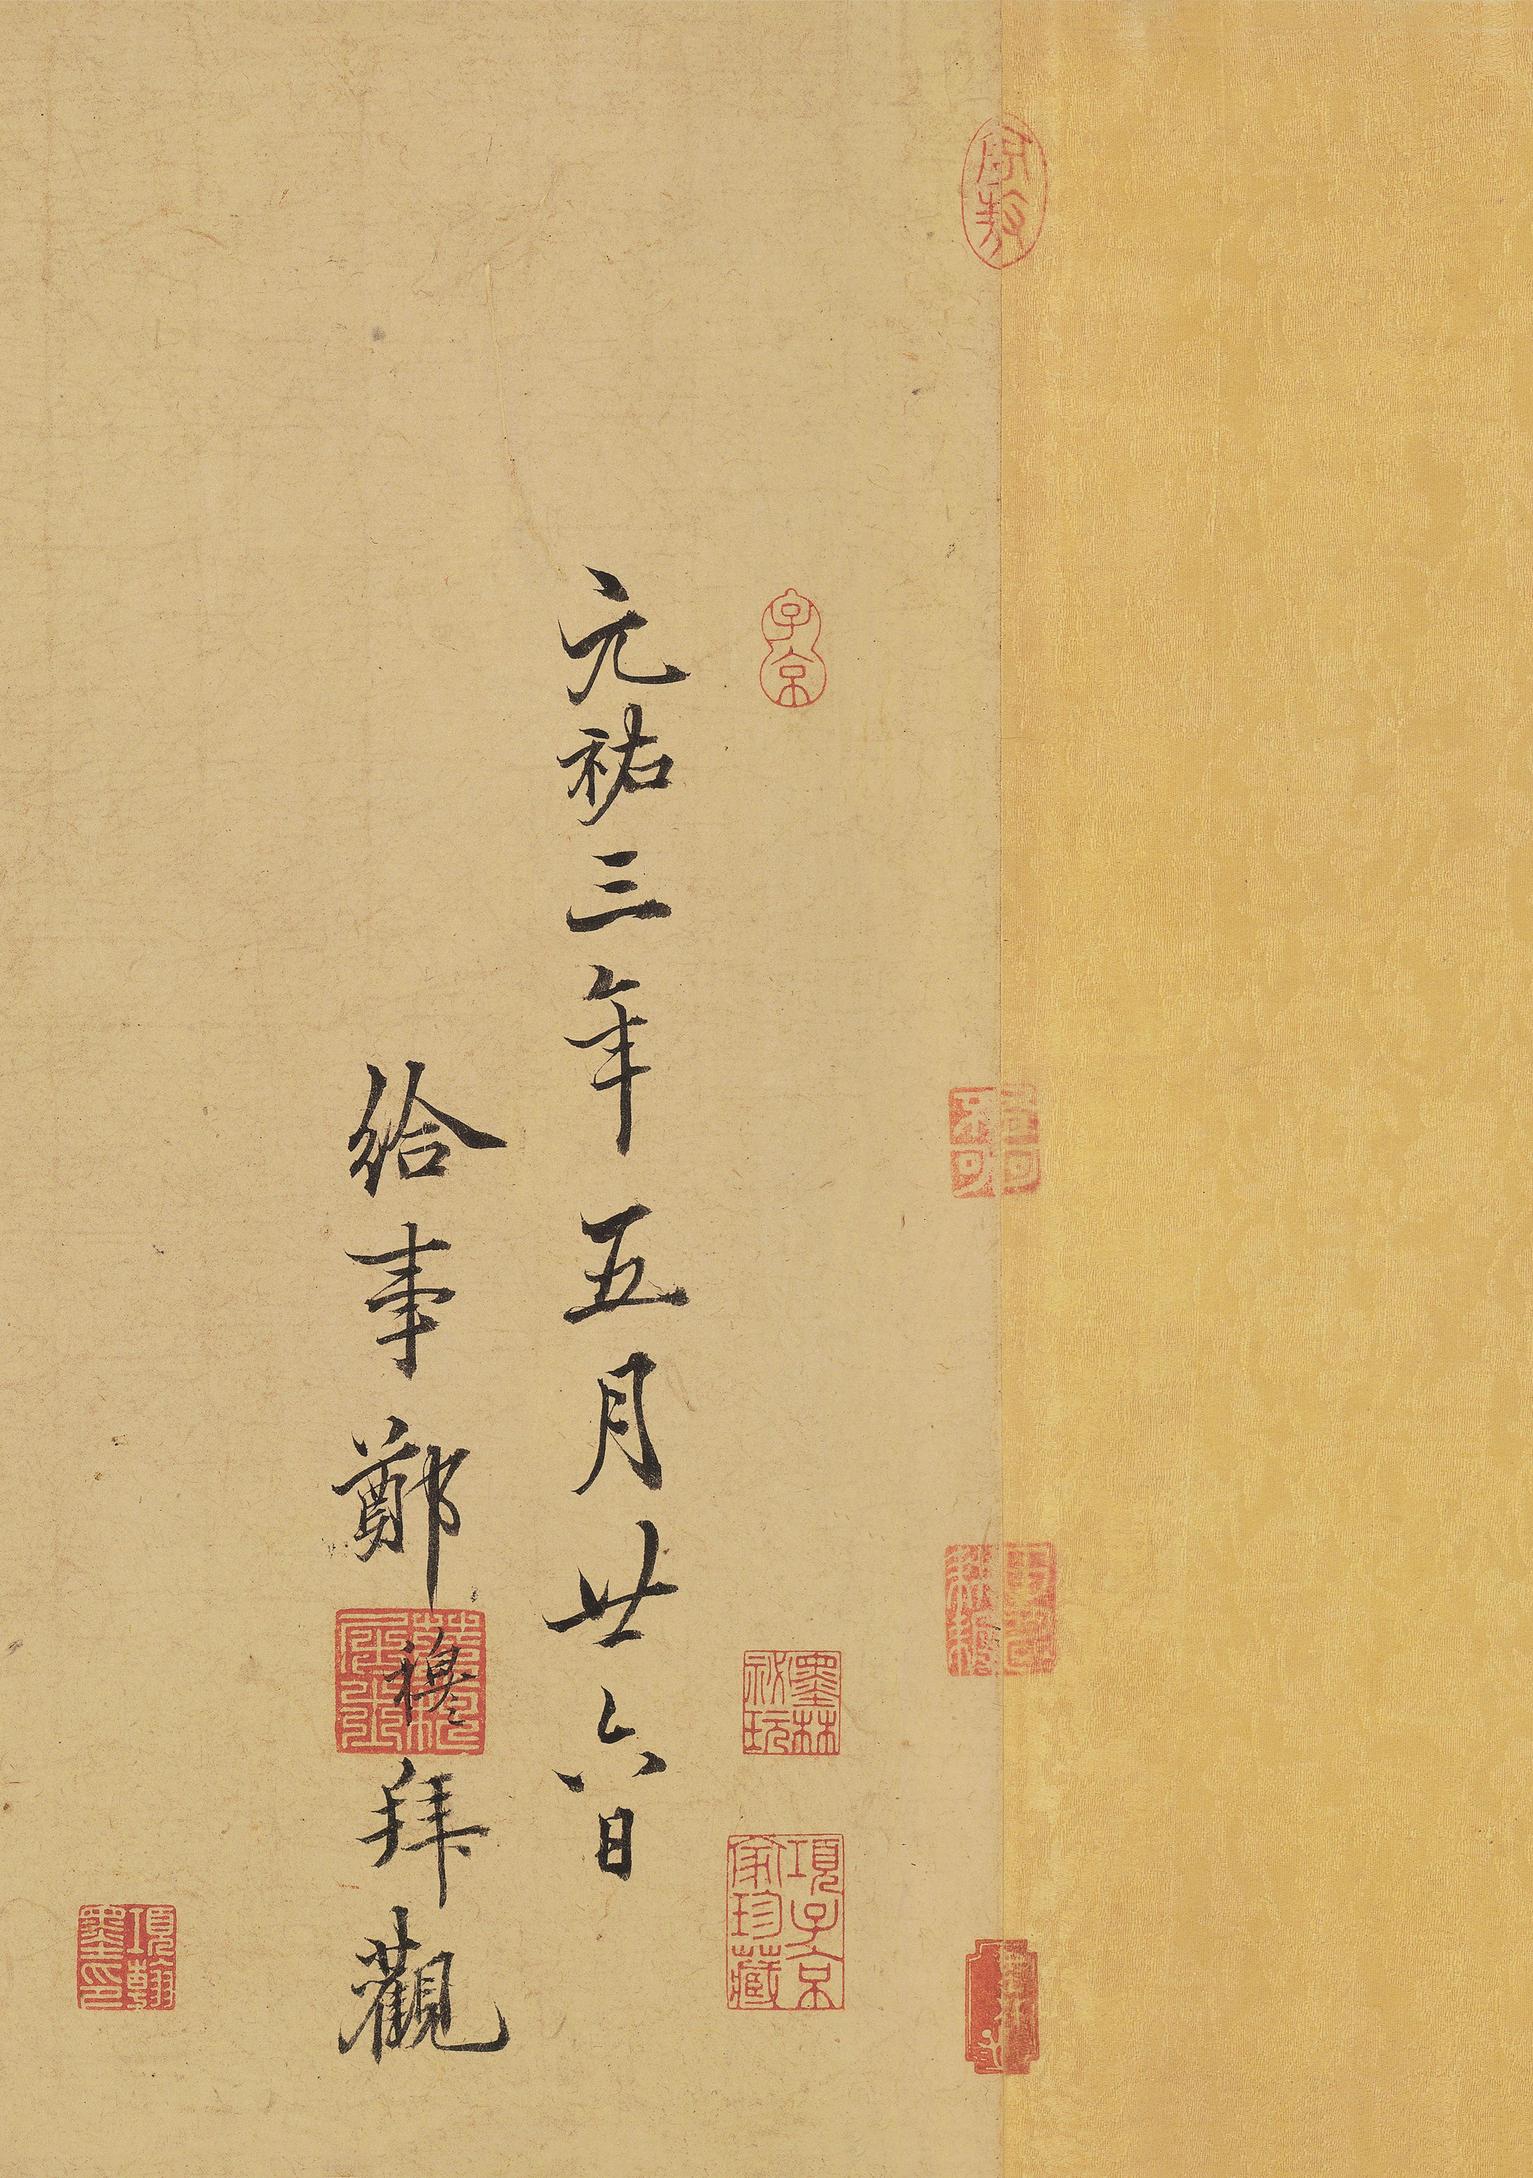 元祐三年五月廿六日
給事鄭穆拜觀
子京
墨林祕玩
項子京家珍藏
項翰墨印